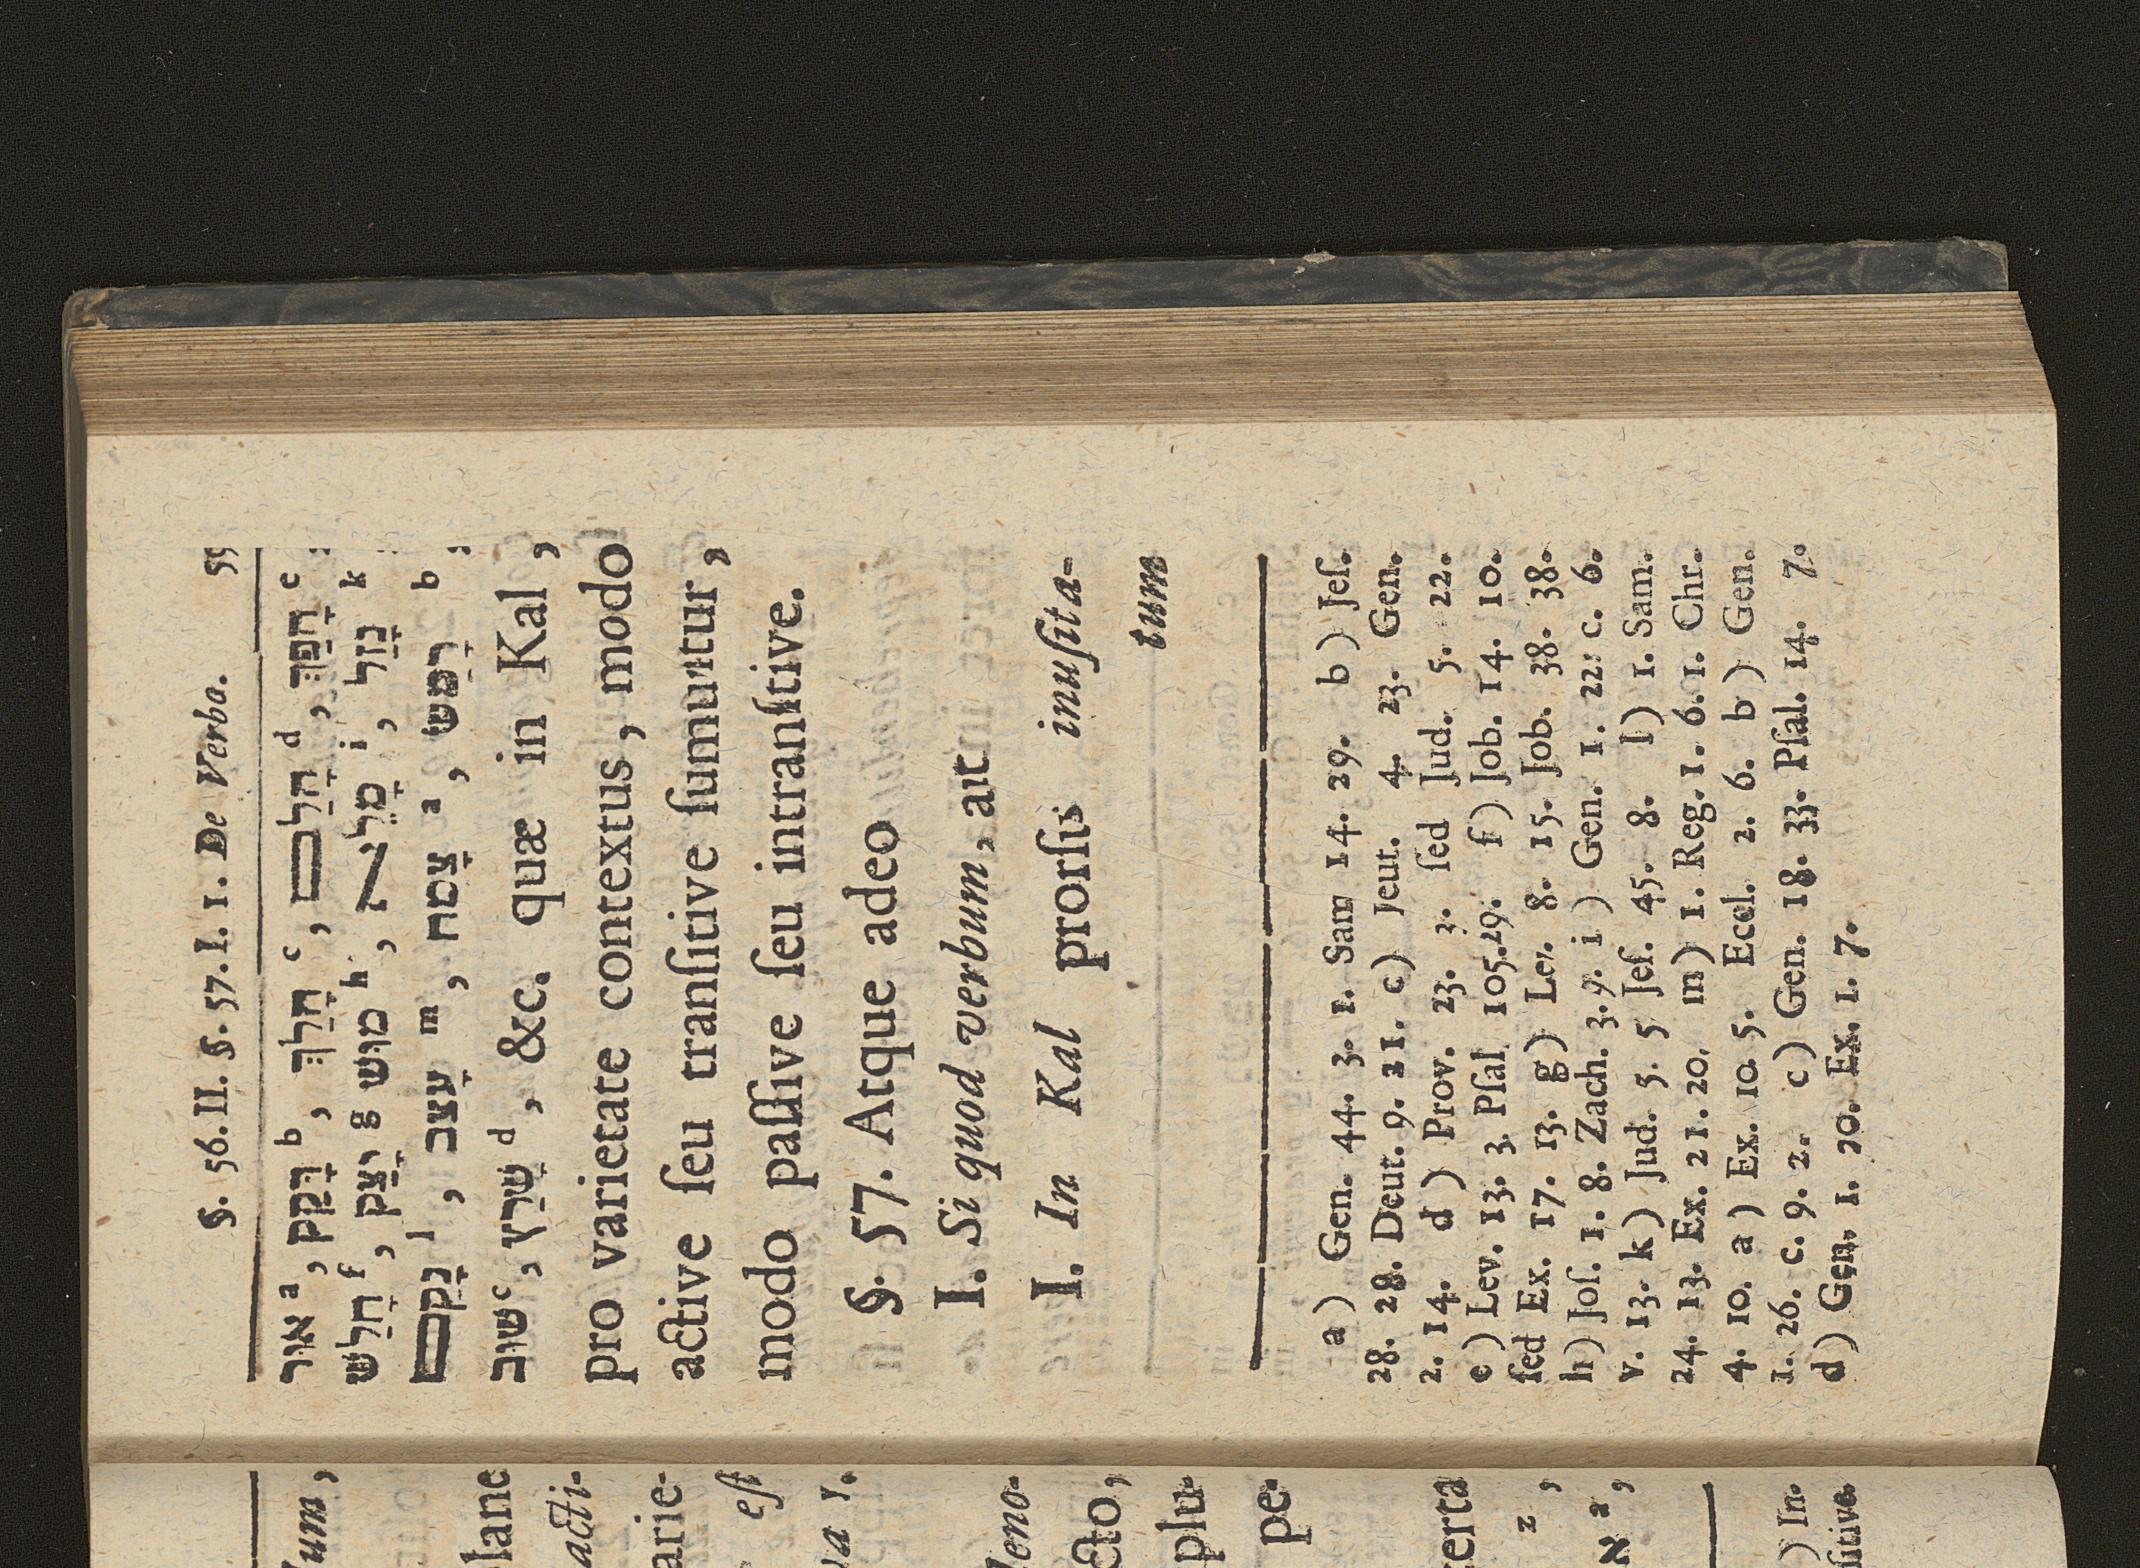 §. 56. II. §. 57. I. 1. De Verbo. 55
אור a, דָקַק b, הָלַךְ c, הָלַם d, הָפַךְ e:
חָלַשׁ f, יָצַק g מוּשׁ h, מָלֵא i, נָזַל k
נָקַם l, עָצַב m, צָמַח a, רָמַשׂ b:
שׁוּב c, שָׁרַץ d, &c. quæ in Kal,
pro varietate contextus, modo
active ſeu tranſitive ſumuntur,
modo paſſive ſeu intranſitive.
§. 57. Atque adeo
I. Si quod verbum, aut
I. In Kal prorſis inuſita-
tum
a) Gen. 44. 3. 1. Sam 14. 29. b) Jeſ.
28. 28. Deut. 9. 21. c) Jeut. 4. 23. Gen.
2. 14. d) Prov. 23. 3. ſed Jud. 5. 22.
e) Lev. 13. 3. Pſal 105.29. f) Job. 14. 10.
ſed Ex. 17. 13. g) Lev. 8. 15. Job. 38. 38.
h) Joſ. 1. 8. Zach. 3. 9. i) Gen. 1. 22: c. 6.
v. 13. k) Jud. 5. 5 Jeſ. 45. 8. l) 1. Sam.
24. 13. Ex. 21. 20. m) 1. Reg. 1. 6. 1. Chr.
4. 10. a) Ex. 10. 5. Eccl. 2. 6. b) Gen.
1. 26. c. 9. 2. c) Gen. 18. 33. Pſal. 14. 7.
d) Gen. 1. 20. Ex. 1. 7.
lane
acti-
arie-
eſt
va y.
cto,
plu-
pe.
z,
א a,
) In-
ſitive.